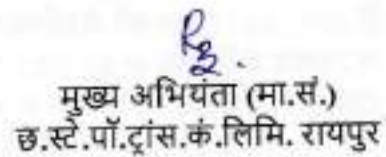 मुख्य अभियंता (मा.सं.)
छ.स्टे.पॉ.ट्रांस.कं.लिमि. रायपुर